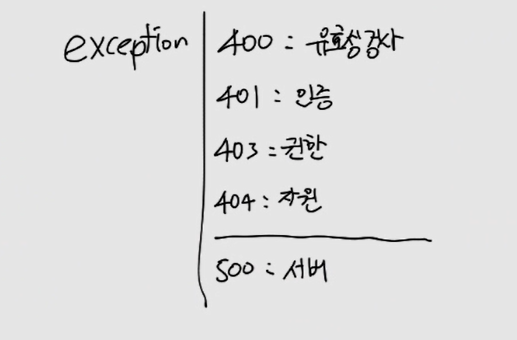 exception
400 : 유효성 검사
401 : 인증
403 : 권한
404 : 자원
500 : 서버